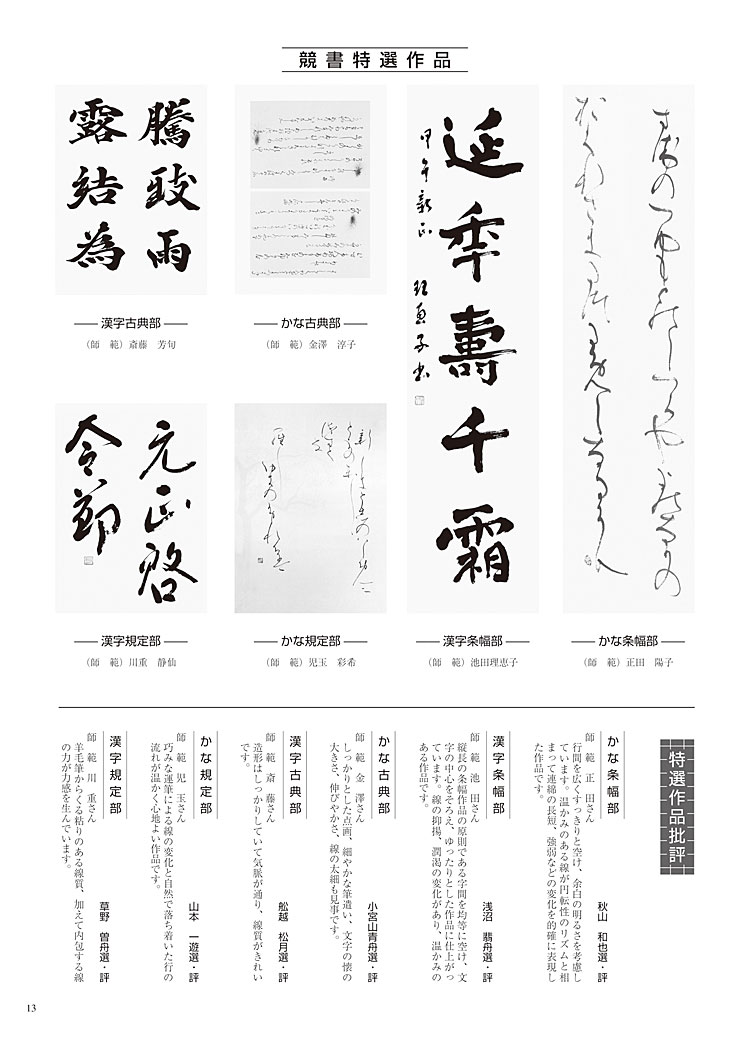 競書特選作品
騰致雨
露結為
漢字古典部
（師　範）斎藤　芳旬
かな古典部
（師　範）金澤　淳子
延年壽千霜
甲午新正
理恵子書
漢字条幅部
（師　範）池田理恵子
かな条幅部
（師　範）正田　陽子
元正啓
令節
漢字規定部
（師　範）川重　静仙
かな規定部
（師　範）児玉　彩希
特選作品批評
かな条幅部
秋山　和也選・評
師　範　正　田さん
行間を広くすっきりと空け、余白の明るさを考慮し
ています。温かみのある線が円転性のリズムと相
まって連綿の長短、強弱などの変化を的確に表現し
た作品です。
漢字条幅部
浅沼　翡舟選・評
師　範　池　田さん
縦長の条幅作品の原則である字間を均等に空け、文
字の中心をそろえ、ゆったりとした作品に仕上がっ
ています。線の抑揚、潤渇の変化があり、温かみの
ある作品です。
かな古典部
小宮山青舟選・評
師　範　金　澤さん
しっかりとした点画、細やかな筆遣い、文字の懐の
大きさ、伸びやかさ、線の太細も見事です。
漢字古典部
舩越　松月選・評
師　範　斎　藤さん
造形はしっかりしていて気脈が通り、線質がきれい
です。
かな規定部
山本　一遊選・評
師　範　児　玉さん
巧みな運筆による線の変化と自然で落ち着いた行の
流れが温かく心地よい作品です。
漢字規定部
草野　曽舟選・評
師　範　川　重さん
羊毛筆からくる粘りのある線質、加えて内包する線
の力が力感を生んでいます。
13